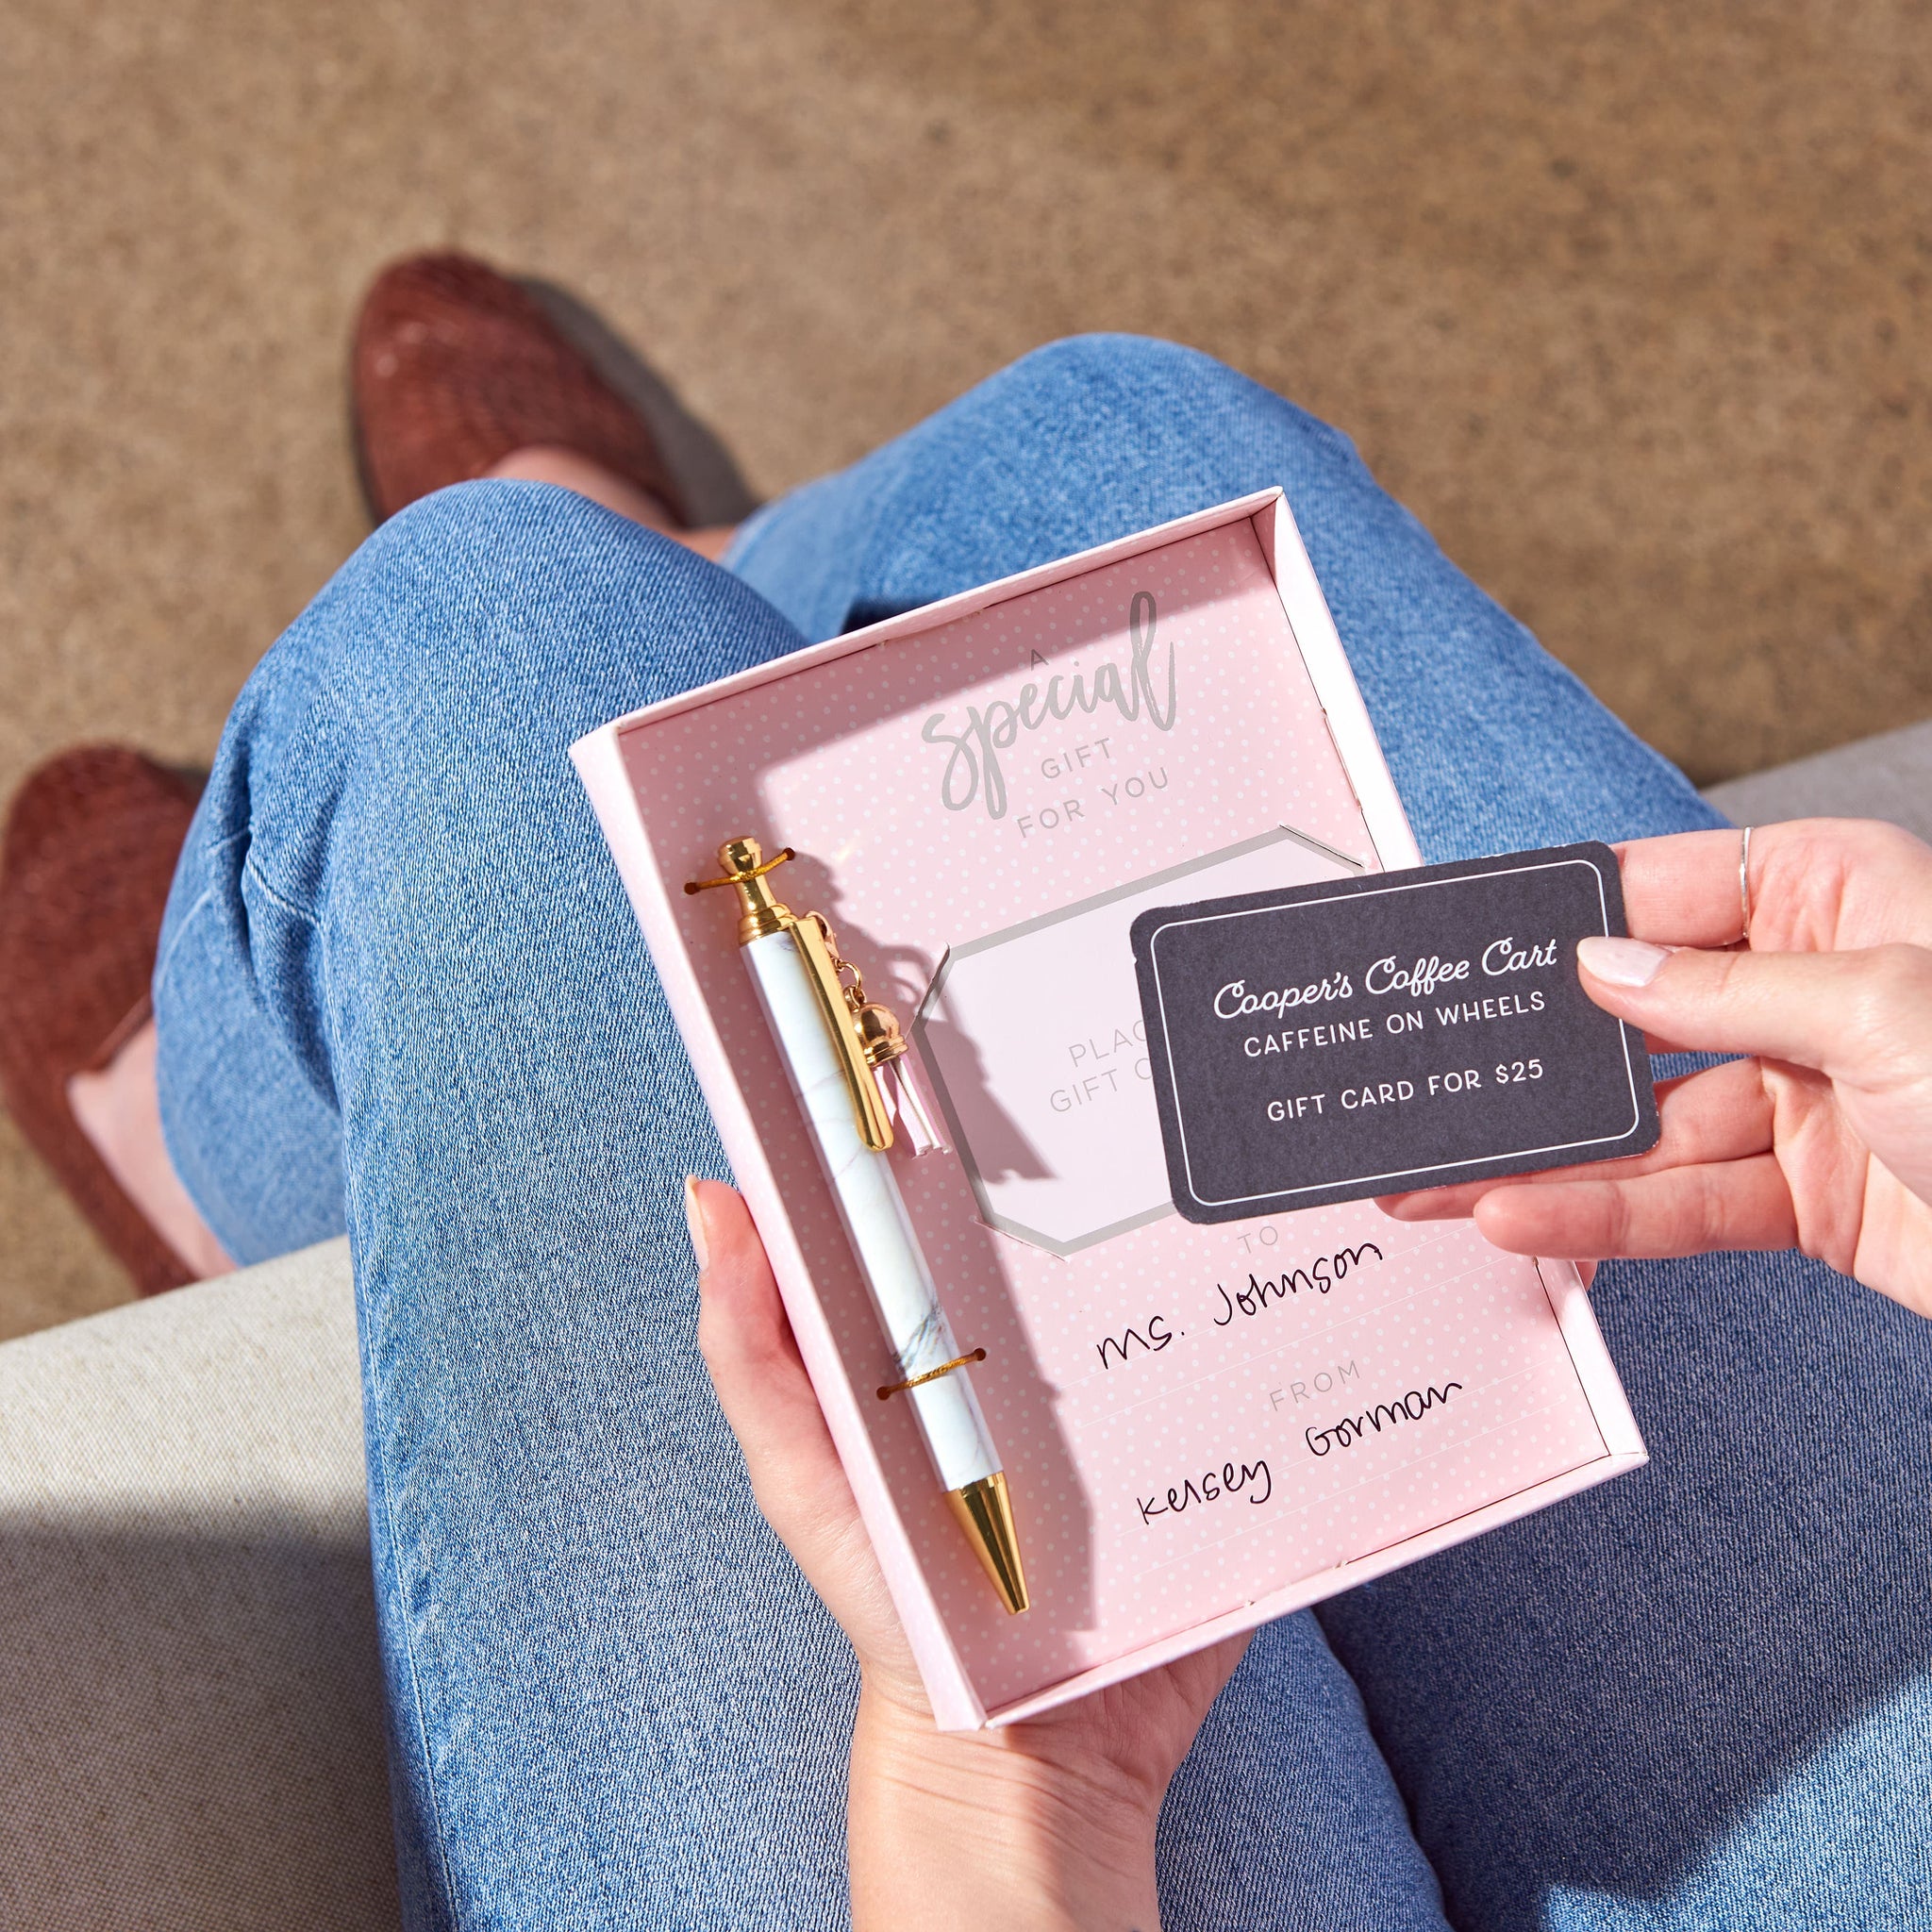 A
special
GIFT
FOR YOU
Cooper's Coffee Cart
CAFFEINE ON WHEELS
GIFT CARD FOR $25
GIFT
TO
Ms. Johnson
FROM
Kelsey Gorman